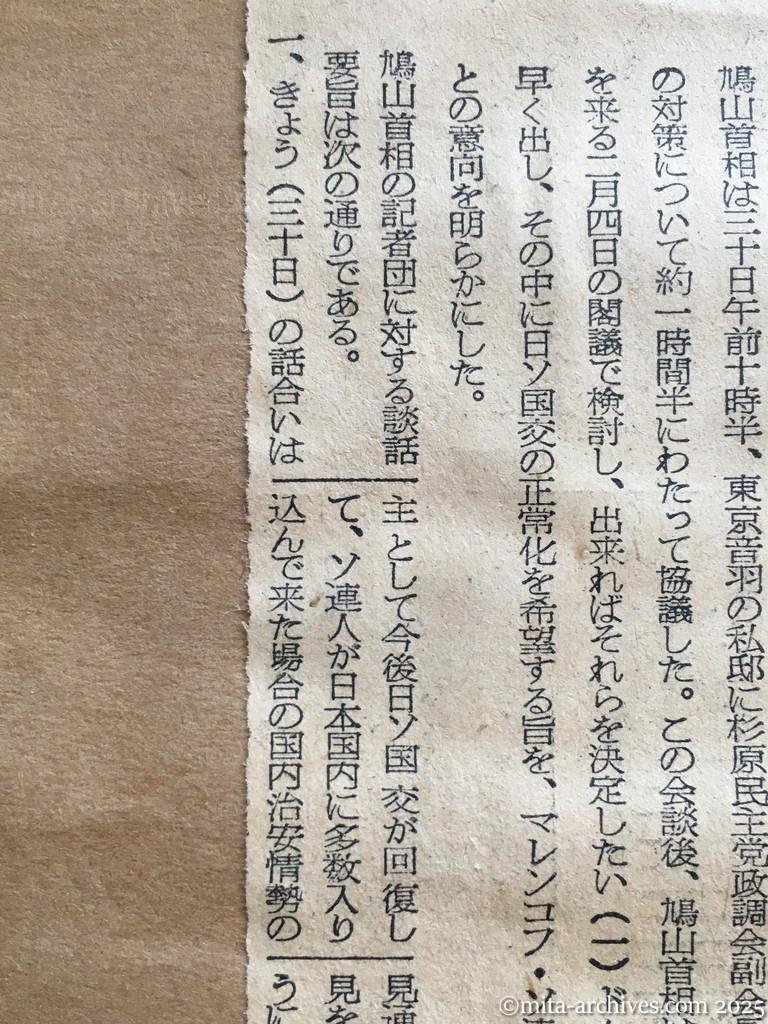 鳩山首相は三十日午前十時半、東京音羽の私邸に杉原民主党政調会副会
の対策について約一時間半にわたって協議した。この会談後、鳩山首相
を来る二月四日の閣議で検討し、出来ればそれらを決定したい（一）ド
早く出し、その中に日ソ国交の正常化を希望する旨を、マレンコフ・ソ連
との意向を明らかにした。
鳩山首相の記者団に対する談話
要旨は次の通りである。
一、きょう（三十日）の話合いは
主として今後日ソ国交が回復し
て、ソ連人が日本国内に多数入り
込んで来た場合の国内治安情勢の
見通
見を
うに
©mita-archives.com 2025